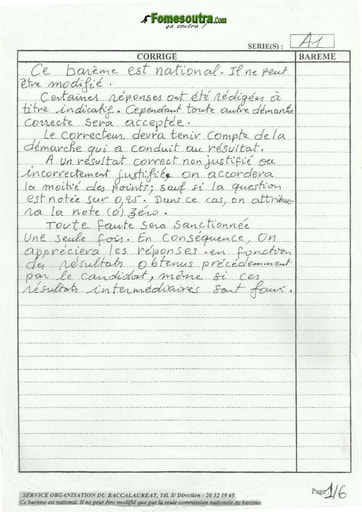 Fomesoutra.com
ça soutra !
SERIE(S) : A1
CORRIGE
BAREME
Ce barème est national. Il ne peut
être modifié.
Certaines réponses ont été rédigées à
titre indicatif. Cependant toute autre démarche
correcte sera acceptée.
Le correcteur devra tenir compte de la
démarche qui a conduit au résultat.
A un résultat correct non justifié ou
incorrectement justifié on accordera
la moitié des points ; sauf si la question
est notée sur 0,25. Dans ce cas, on attribue
ra la note (0) zéro.
Toute faute sera sanctionnée
Une seule fois. En conséquence, on
appréciera les réponses en fonction
des résultats obtenus précédemment
par le candidat, même si ces
résultats intermédiaires sont faux.
SERVICE ORGANISATION DU BACCALAUREAT, Tél. S/ Direction : 20 32 19 45
Ce barème est national. Il ne peut être modifié que par la seule commission nationale de barème
Page 1/6